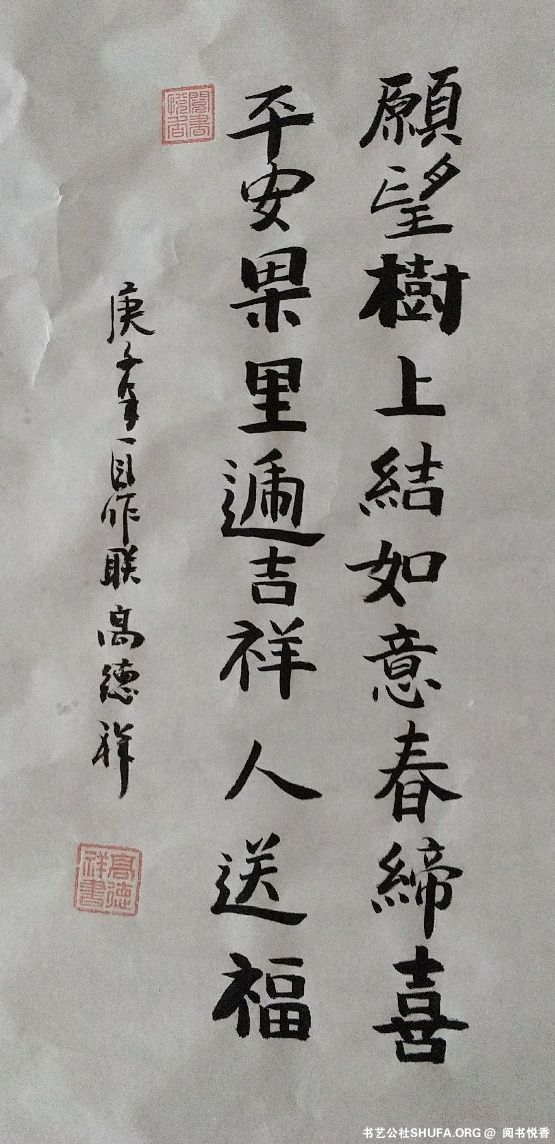 願望樹上結如意春締喜
平安果里遞吉祥人送福
庚子年自作联高德祥
閱書悅香
高德祥書
书艺公社SHUFA.ORG @ 阅书悦香